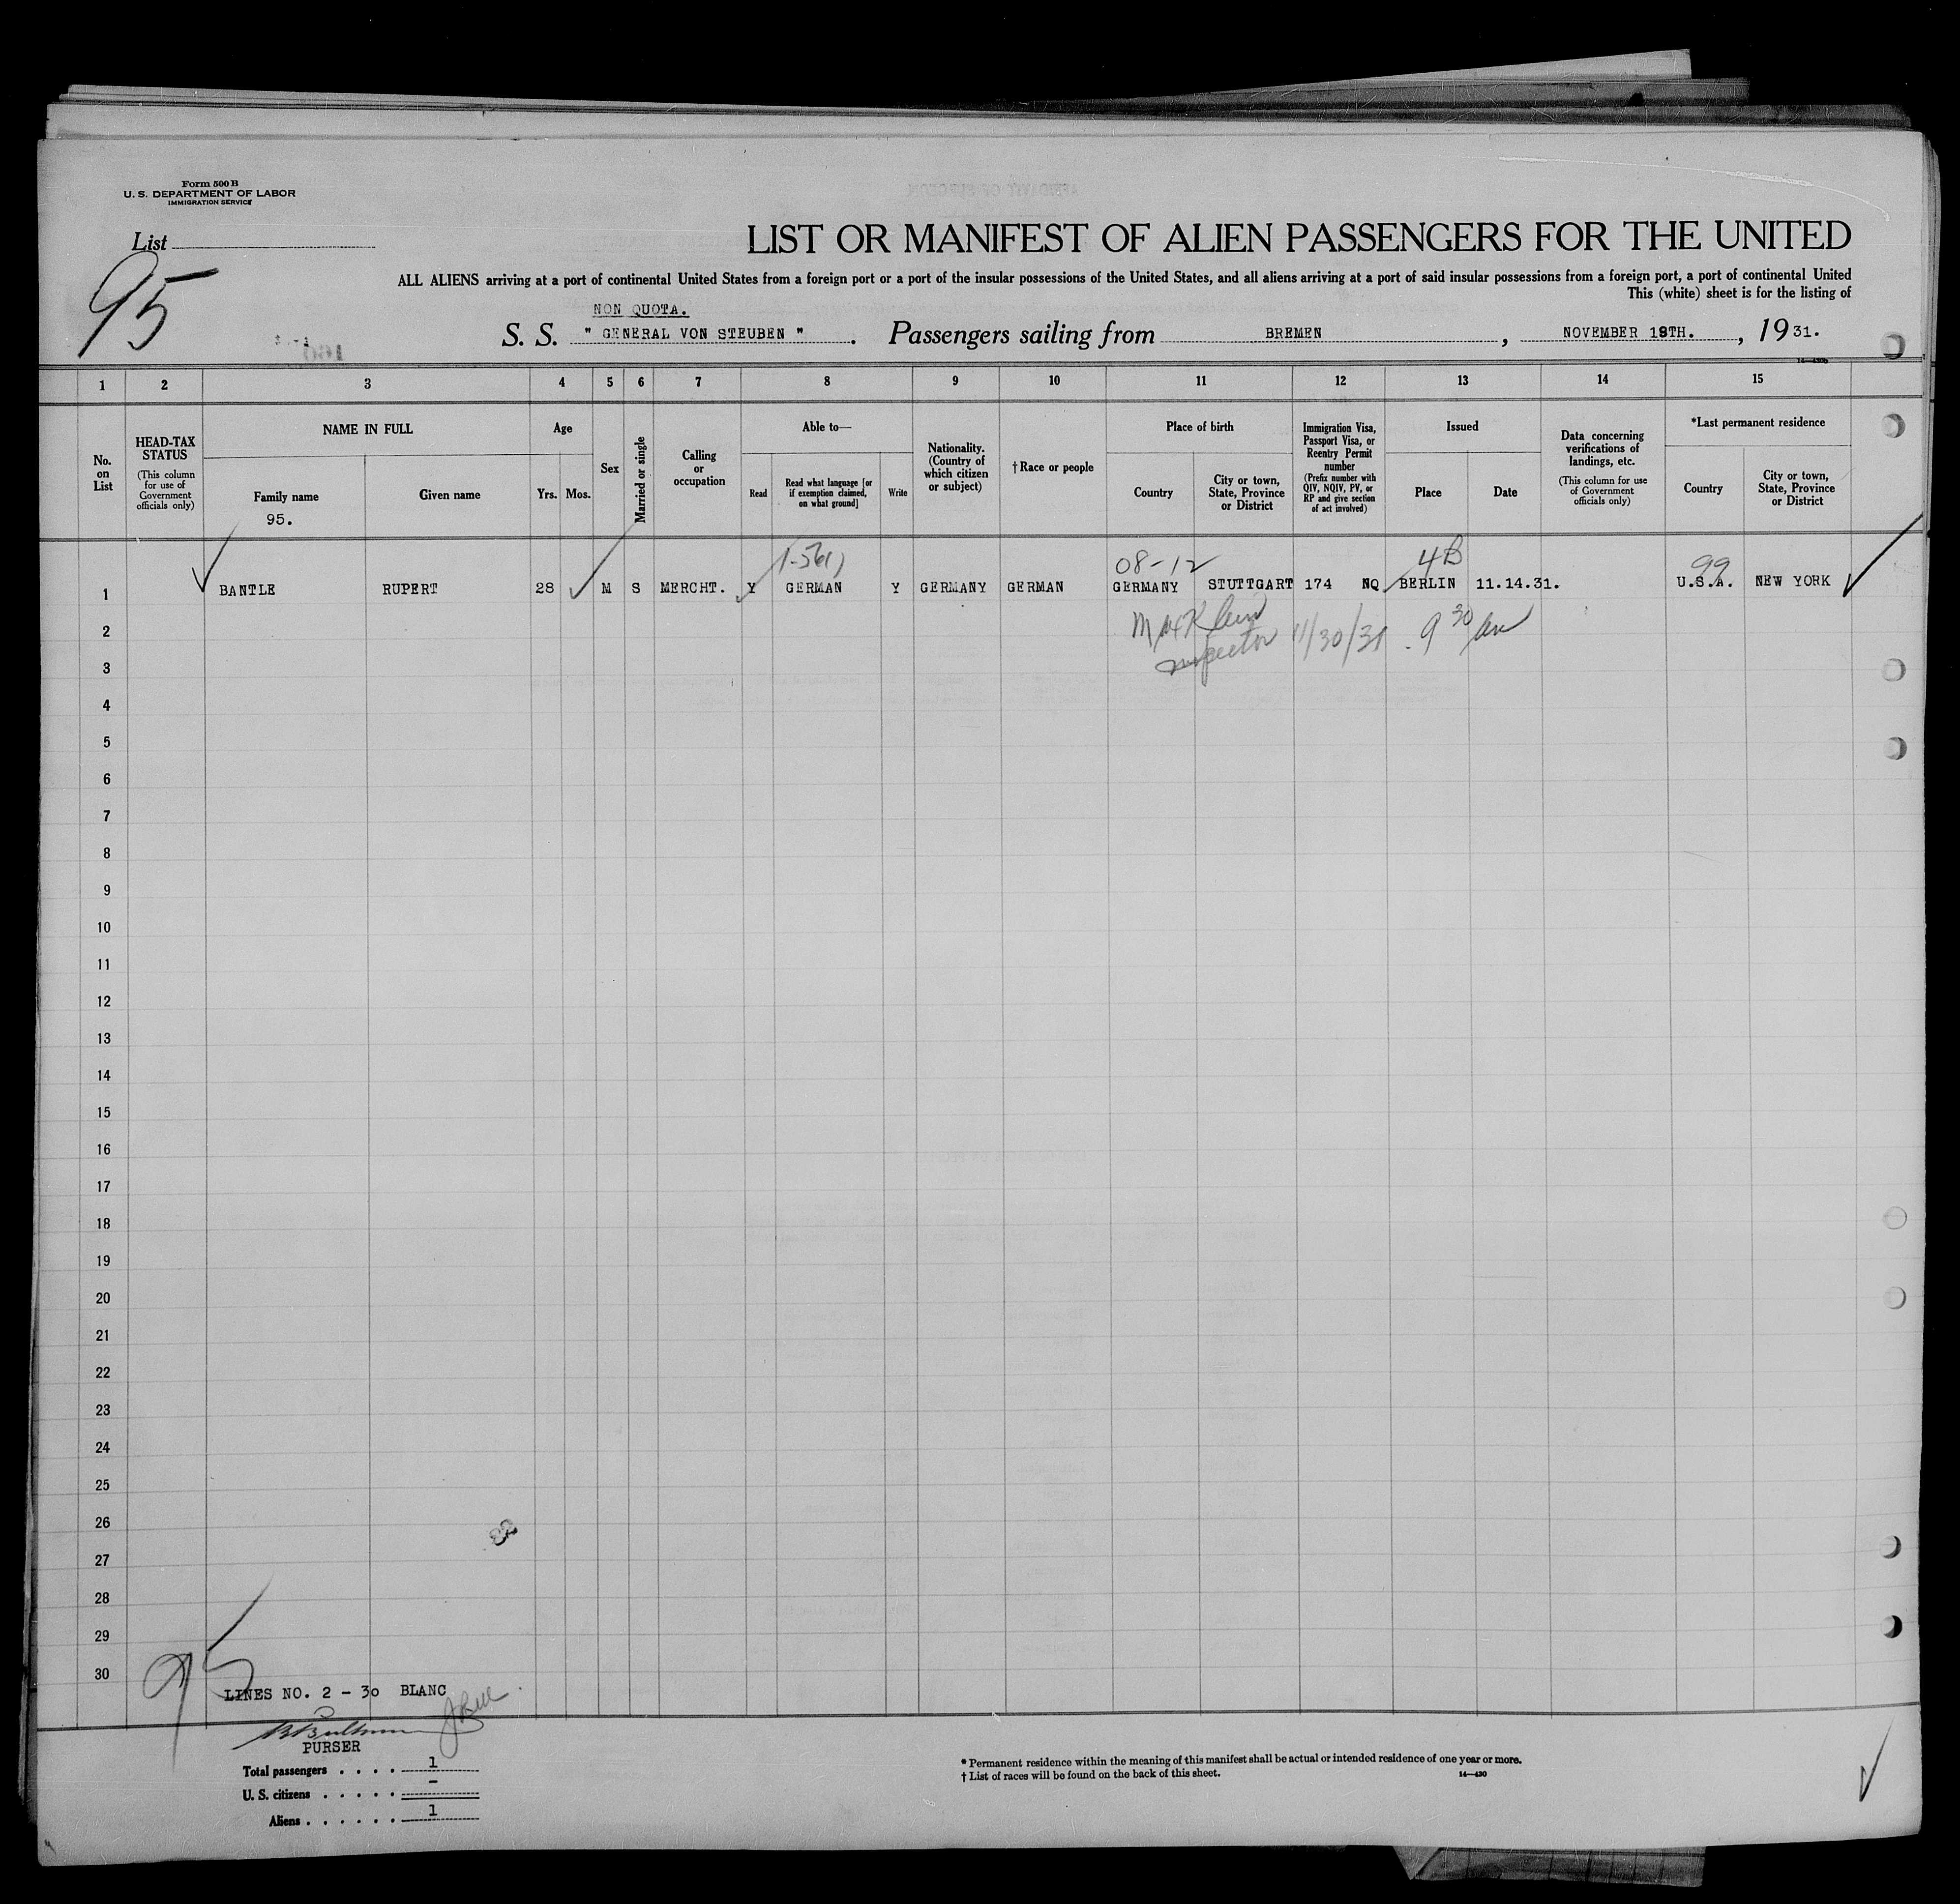 Form 500 B
U. S. DEPARTMENT OF LABOR
IMMIGRATION SERVICE
List
95
LIST OR MANIFEST OF ALIEN PASSENGERS FOR THE UNITED
ALL ALIENS arriving at a port of continental United States from a foreign port or a port of the insular possessions of the United States, and all aliens arriving at a port of said insular possessions from a foreign port, a port of continental United
This (white) sheet is for the listing of
NON QUOTA.
S. S. " GENERAL VON STEUBEN ". Passengers sailing from BREMEN, NOVEMBER 19TH., 1931.
1 2 3 4 5 6 7 8 9 10 11 12 13 14 15
No. on List
HEAD-TAX STATUS
(This column for use of Government officials only)
NAME IN FULL
Family name
95.
Given name
Age
Yrs. Mos.
Sex
Married or single
Calling or occupation
Able to—
Read
Read what language [or if exemption claimed, on what ground]
Write
Nationality. (Country of which citizen or subject)
†Race or people
Place of birth
Country
City or town, State, Province or District
Immigration Visa, Passport Visa, or Reentry Permit number
(Prefix number with QIV, NQIV, PV, or RP and give section of act involved)
Issued
Place
Date
Data concerning verifications of landings, etc.
(This column for use of Government officials only)
*Last permanent residence
Country
City or town, State, Province or District
08-12 4B 99
1 BANTLE RUPERT 28 M S MERCHT. Y GERMAN Y GERMANY GERMAN GERMANY STUTTGART 174 NQ BERLIN 11.14.31. U.S.A. NEW YORK
2 Klein 11/30/31 9 30 am
Inspector
3
4
5
6
7
8
9
10
11
12
13
14
15
16
17
18
19
20
21
22
23
24
25
26
27
28
29
30
95
LINES NO. 2 - 30 BLANC
PURSER
Total passengers . . . . 1
U. S. citizens . . . . . -
Aliens . . . . . . 1
* Permanent residence within the meaning of this manifest shall be actual or intended residence of one year or more.
† List of races will be found on the back of this sheet.
14—430